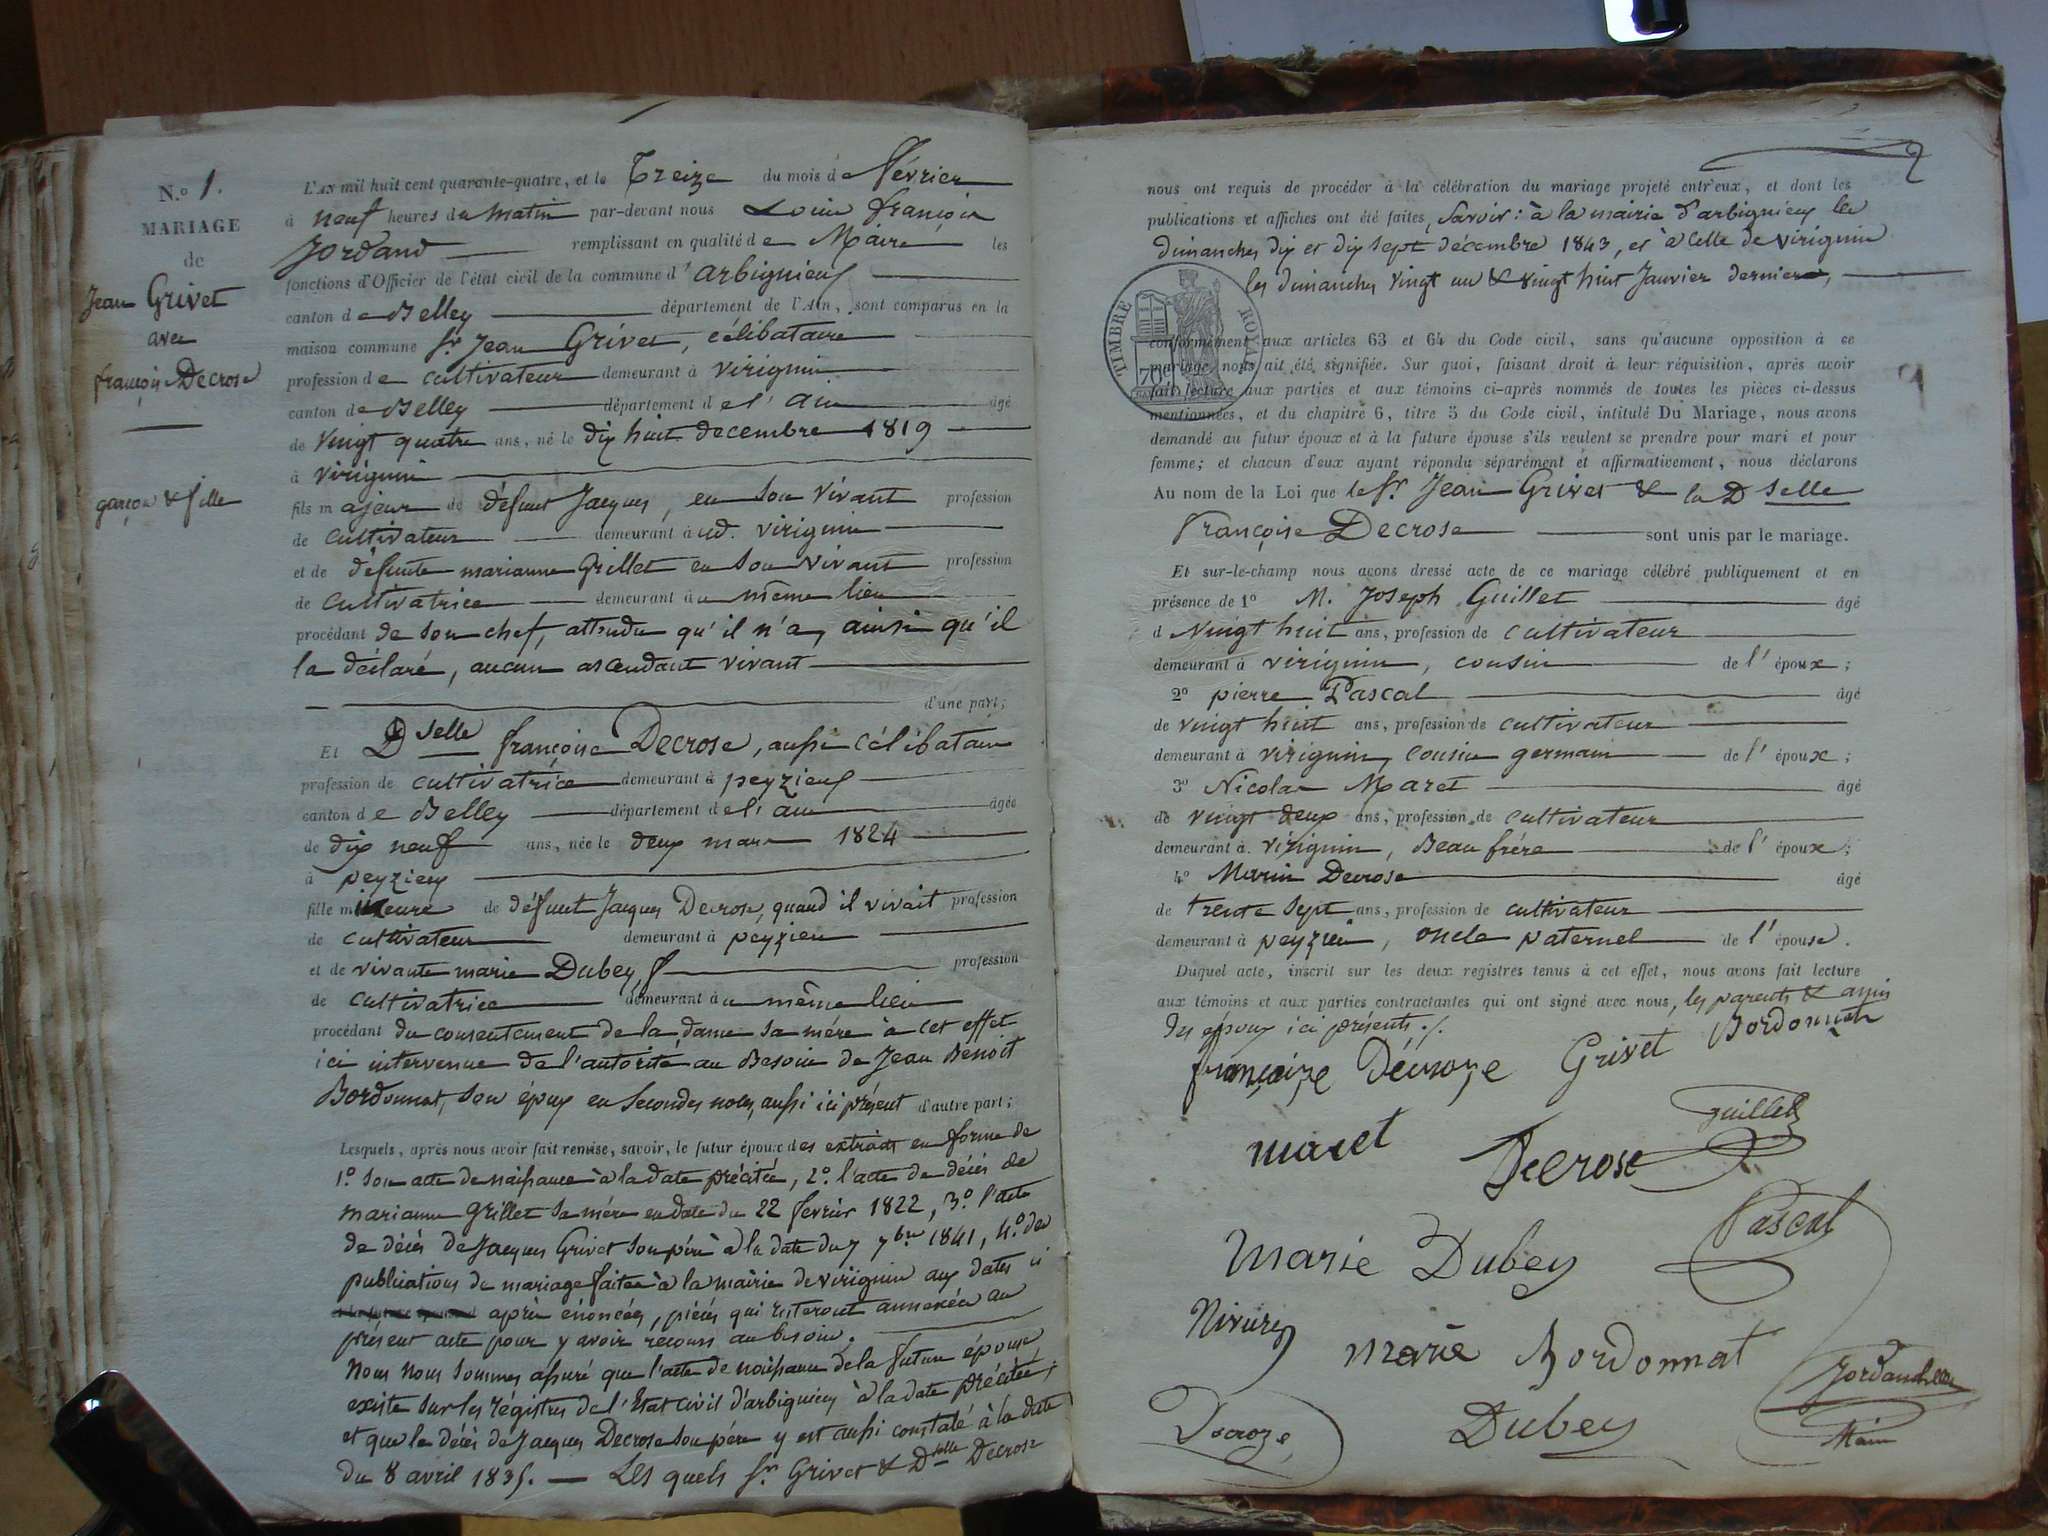 N.o 1.
MARIAGE
de
Jean Grivet
avec
françoise Decrose
garçon & fille
L'AN mil huit cent quarante-quatre, et le Treize du mois de février
à neuf heures du matin par-devant nous Louis françois
Jordand remplissant en qualité de Maire les
fonctions d'Officier de l'état civil de la commune d'arbignieu
canton de Belley département de l'Ain, sont comparus en la
maison commune Sr. Jean Grivet, célibataire
profession de cultivateur demeurant à virignin
canton de Belley département de l'ain âgé
de vingt quatre ans, né le dix huit decembre 1819
à virignin
fils majeur de défunt Jacques, en son vivant profession
de cultivateur demeurant à ud. virignin
et de défunte marianne Grillet en son vivant profession
de cultivatrice demeurant au même lieu
procédant de son chef, attendu qu'il n'a, ainsi qu'il
la déclaré, aucun ascendant vivant
d'une part;
Et Dselle françoise Decrose, aussi célibataire
profession de cultivatrice demeurant à peyzieu
canton de Belley département de l'ain âgée
de dix neuf ans, née le deux mars 1824
à peyzieu
fille mineure de défunt Jacques Decrose, quand il vivait profession
de cultivateur demeurant à peyzieu
et de vivante marie Dubey profession
de cultivatrice demeurant au même lieu
procédant du consentement de la dame sa mère à cet effet
ici intervenue de l'autorité au Besoin de Jean Benoit
Bordonnat, son époux en secondes noces, aussi ici présent d'autre part;
Lesquels, après nous avoir fait remise, savoir, le futur époux des extraits en forme de
1.o son acte de naissance à la date précitée, 2.o l'acte de décés de
marianne Grillet sa mère en date du 22 fevrier 1822, 3.o l'acte
de décés de Jacques Grivet son père à la date du 7 7bre 1841, 4.o des
publications de mariage faites à la mairie de virignin aux dates ci
après énoncées, pièces qui resteront annexées au
présent acte pour y avoir recours au besoin.
Nous nous sommes assuré que l'acte de naissance de la future épouse
existe sur les régistres de l'Etat civil d'arbignieu à la date précitée,
et que le décés de Jacques Decrose son père y est aussi constaté à la date
du 8 avril 1835. — Les quels Sr. Grivet & Dselle Decrose
nous ont requis de procéder à la célébration du mariage projeté entr'eux, et dont les
publications et affiches ont été faites, Savoir: à la mairie d'arbignieu les
dimanches dix et dix sept décembre 1843, et à celle de virignin
les dimanches vingt un & vingt huit Janvier dernier,
TIMBRE ROYAL
70
conformément aux articles 63 et 64 du Code civil, sans qu'aucune opposition à ce
mariage nous ait été signifiée. Sur quoi, faisant droit à leur réquisition, après avoir
fait lecture aux parties et aux témoins ci-après nommés de toutes les pièces ci-dessus
mentionnées, et du chapitre 6, titre 5 du Code civil, intitulé Du Mariage, nous avons
demandé au futur époux et à la future épouse s'ils veulent se prendre pour mari et pour
femme; et chacun d'eux ayant répondu séparément et affirmativement, nous déclarons
Au nom de la Loi que le Sr. Jean Grivet & la Dselle
Françoise Decrose sont unis par le mariage.
Et sur-le-champ nous avons dressé acte de ce mariage célébré publiquement et en
présence de 1o M. Joseph Guillet âgé
d Vingt huit ans, profession de cultivateur
demeurant à virignin, cousin de l'époux;
2o pierre Pascal âgé
de vingt huit ans, profession de cultivateur
demeurant à virignin, cousin germain de l'époux;
3o Nicolas Maret âgé
de vingt deux ans, profession de cultivateur
demeurant à virignin, Beau frére de l'époux;
4o Marin Decrose âgé
de trente sept ans, profession de cultivateur
demeurant à peyzieu, oncle paternel de l'épouse.
Duquel acte, inscrit sur les deux registres tenus à cet effet, nous avons fait lecture
aux témoins et aux parties contractantes qui ont signé avec nous, les parents & amis
des époux ici présents ./.
françoize Décroze Grivet Bordonnat
guillet
maret Decrose
Pascal
marie Dubey
marie Bordonnat
Jordand
Decroze Dubey Maire